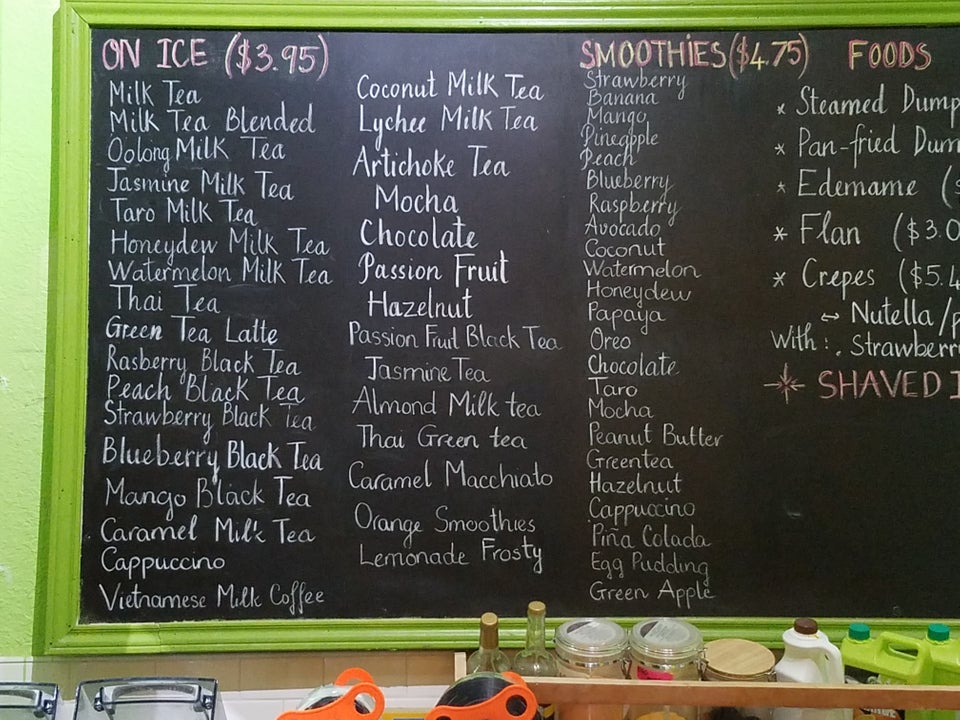 ON ICE ($3.95)
Milk Tea
Milk Tea Blended
Oolong Milk Tea
Jasmine Milk Tea
Taro Milk Tea
Honeydew Milk Tea
Watermelon Milk Tea
Thai Tea
Green Tea Latte
Rasberry Black Tea
Peach Black Tea
Strawberry Black Tea
Blueberry Black Tea
Mango Black Tea
Caramel Milk Tea
Cappuccino
Vietnamese Milk Coffee
Coconut Milk Tea
Lychee Milk Tea
Artichoke Tea
Mocha
Chocolate
Passion Fruit
Hazelnut
Passion Fruit Black Tea
Jasmine Tea
Almond Milk tea
Thai Green tea
Caramel Macchiato
Orange Smoothies
Lemonade Frosty
SMOOTHIES ($4.75)
Strawberry
Banana
Mango
Pineapple
Peach
Blueberry
Raspberry
Avocado
Coconut
Watermelon
Honeydew
Papaya
Oreo
Chocolate
Taro
Mocha
Peanut Butter
Greentea
Hazelnut
Cappuccino
Piña Colada
Egg Pudding
Green Apple
FOODS
* Steamed Dump
* Pan-fried Dum
* Edemame ($
* Flan ($3.0
* Crepes ($5.4
↔ Nutella/p
With: . Strawberr
SHAVED I